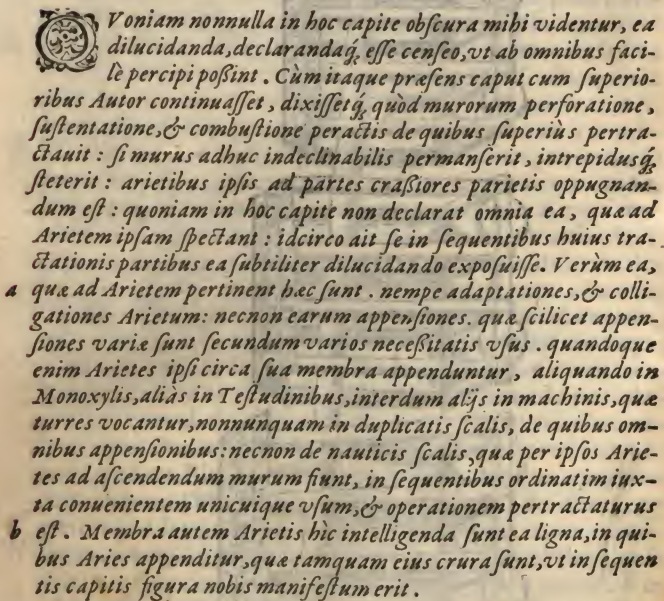 QVoniam nonnulla in hoc capite obſcura mihi videntur, ea
dilucidanda,declarandaq́; eſſe cenſeo,vt ab omnibus faci-
lè percipi poßint. Cùm itaque præſens caput cum ſuperio-
ribus Autor continuaſſet, dixiſſetq́; quòd murorum perforatione,
ſuſtentatione,& combuſtione peractis de quibus ſuperiùs pertra-
ctauit: ſi murus adhuc indeclinabilis permanſerit, intrepidusq́;
ſteterit: arietibus ipſis ad partes craßiores parietis oppugnan-
dum eſt: quoniam in hoc capite non declarat omnia ea, quæ ad
Arietem ipſam ſpectant: idcirco ait ſe in ſequentibus huius tra-
ctationis partibus ea ſubtiliter dilucidando expoſuiſſe. Verùm ea,
a quæ ad Arietem pertinent hæc ſunt. nempe adaptationes,& colli-
gationes Arietum: necnon earum appenſiones. quæ ſcilicet appen-
ſiones variæ ſunt ſecundum varios neceßitatis vſus. quandoque
enim Arietes ipſi circa ſua membra appenduntur, aliquando in
Monoxylis,aliàs in Teſtudinibus,interdum alijs in machinis,quæ
turres vocantur,nonnunquam in duplicatis ſcalis, de quibus om-
nibus appenſionibus:necnon de nauticis ſcalis,quæ per ipſos Arie-
tes ad aſcendendum murum fiunt, in ſequentibus ordinatim iux-
ta conuenientem unicuique vſum,& operationem pertractaturus
b eſt. Membra autem Arietis hìc intelligenda ſunt ea ligna,in qui-
bus Aries appenditur,quæ tamquam eius crura ſunt,vt in ſequen
tis capitis figura nobis manifeſtum erit.